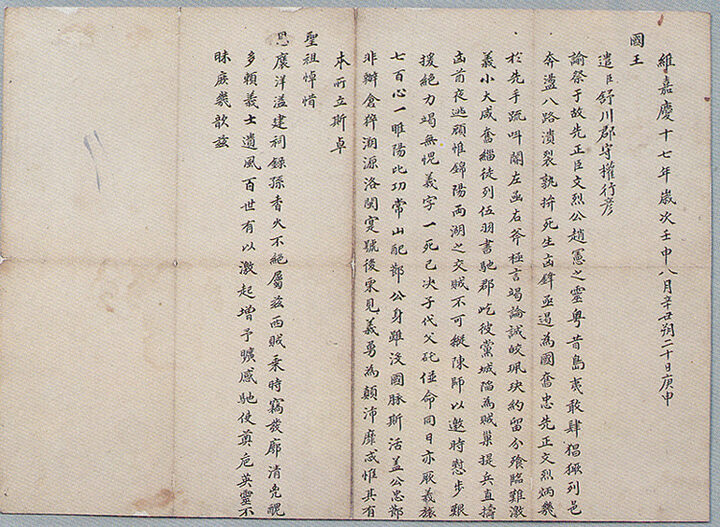 維嘉慶十七年歲次壬申八月辛丑朔二十日庚申
國王
遣臣舒川郡守權行彦
諭祭于故先正臣文烈公趙憲之靈粤昔島夷敢肆猖獗列邑
奔盪八路潰裂孰拚死生齒鋒亟遏為國奮忠先正文烈炳幾
於先手疏叫閤左函右斧極言竭論誠皎珮玦約留分飱臨難激
義小大咸奮緇徒列伍羽書馳郡屹彼黨城陷為賊巢提兵直擣
凾前夜逃顧惟錦陽兩湖之交賊不可縱陳師以邀時愁步艱
援絶力竭無愧義字一死已決子代父死偕命同日亦厥義旅
七百心一睢陽比功常山配鄼公身雖沒國脉斯活盖公忠鄼
非辦倉猝淵源洛閩寔號後栗見義勇為顛沛靡忒惟其有
本所立斯卓
聖祖悼惜
恩褒洋溢建祠錄孫香火不絶屬茲西賊乘時竊發廓清兇醜
多賴義士遺風百世有以激起增予曠感馳使奠卮英靈不
昧庶幾歆茲